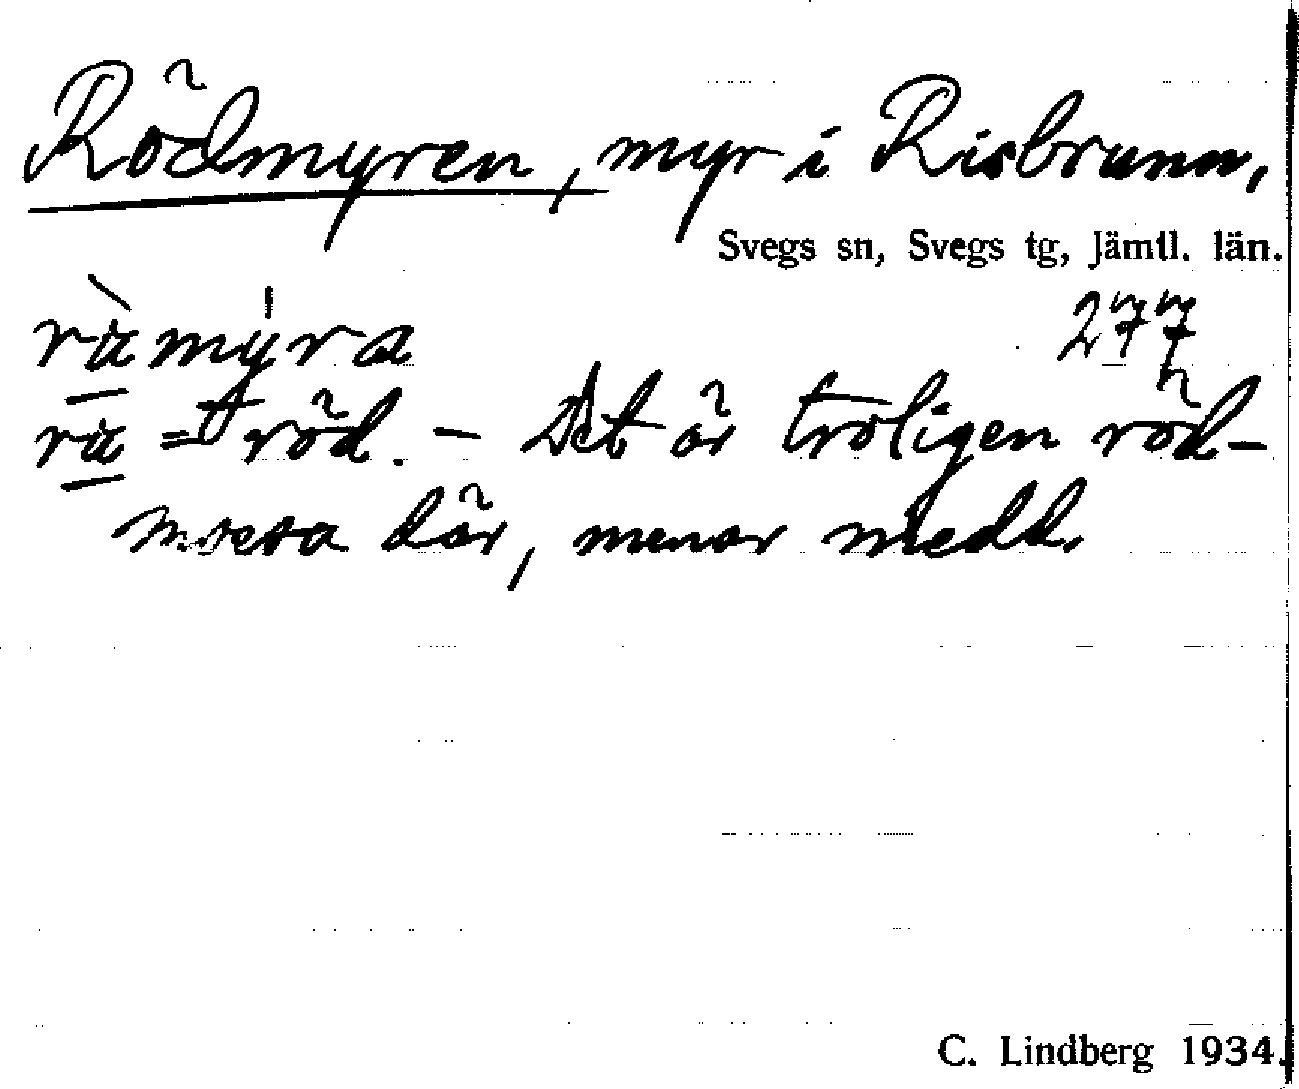 Rödmyren, myr i Risbrunn,
Svegs sn, Svegs tg, Jämtl. län.
277
rämýra
rä = röd. – Det är troligen röd-
mossa där, menar medd.
C. Lindberg 1934.